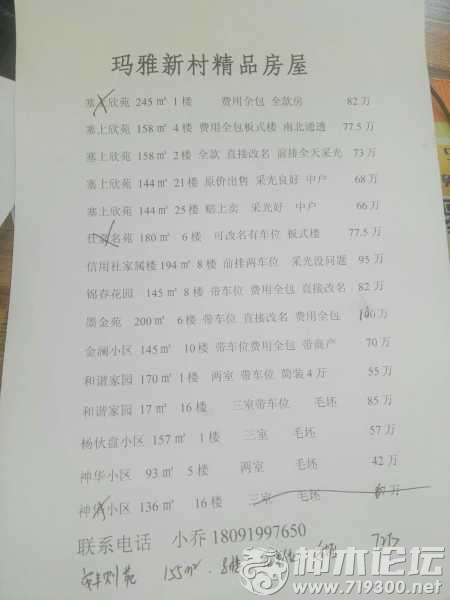 玛雅新村精品房屋
塞上欣苑 245㎡ 1楼 费用全包 全款房 82万
塞上欣苑 158㎡ 4楼 费用全包板式楼 南北通透 77.5万
塞上欣苑 158㎡ 2楼 全款 直接改名 前排全天采光 73万
塞上欣苑 144㎡ 21楼 原价出售 采光良好 中户 68万
塞上欣苑 144㎡ 25楼 赔上卖 采光好 中户 66万
仕豪名苑 180㎡ 6楼 可改名有车位 板式楼 77.5万
信用社家属楼 194㎡ 8楼 前排两车位 采光没问题 95万
锦春花园 145㎡ 8楼 带车位 费用全包 直接改名 82万
墨金苑 200㎡ 6楼 带车位 直接改名 费用全包 100万
金澜小区 145㎡ 10楼 带车位费用全包 带商产 70万
和谐家园 170㎡ 1楼 两室 带车位 简装4万 55万
和谐家园 17㎡ 16楼 三室带车位 毛坯 85万
杨伙盘小区 157㎡ 1楼 三室 毛坯 57万
神华小区 93㎡ 5楼 两室 毛坯 42万
神华小区 136㎡ 16楼 三室 毛坯 万
联系电话 小乔 18091997650
155㎡
神木论坛
www.719300.net